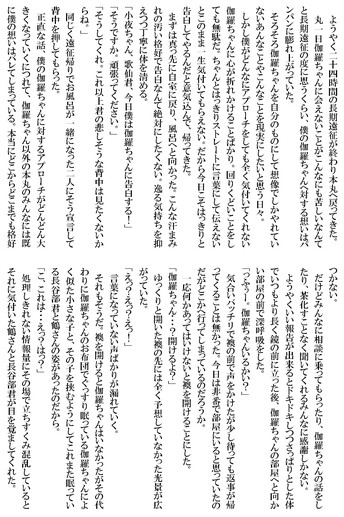 ようやく二十四時間の長期遠征が終わり本丸へ戻ってきた。
丸一日伽羅ちゃんに会えないことがこんなにも苦しいなんて
と長期遠征の度に思うくらい、僕の伽羅ちゃんに対する想いは、
パンパンに膨れ上がっていた。
そろそろ伽羅ちゃんを自分のものにして想像でしかやれてい
ないあんなことやこんなことを現実にしたいと思う日々。
しかし僕がどんなにアプローチをしても全く気付いてくれない
伽羅ちゃんに心が折れかけることばかり。回りくどいことをし
ても無駄だ。ちゃんとはっきりストレートに言葉にして伝えない
とこのまま一生気付いてもらえない。だから今日こそはっきりと
告白してやるんだと意気込んで、帰ってきた。
まずは真っ先に自室に戻り、風呂へと向かった。こんな汗まみ
れの汚い格好で告白なんて絶対にしたくない。逸る気持ちを抑
えつつ丁寧に体を清める。
「小夜ちゃん、歌仙君、今日僕は伽羅ちゃんに告白する！」
「そうですか。頑張ってください。」
「そうしてくれ。これ以上君の悲しそうな背中は見たくないか
らね。」
同じく遠征帰りでお風呂が一緒になった二人にそう宣言して
背中を押してもらった。
正直な話、僕の伽羅ちゃんに対するアプローチがどんどん大
きくなっていくにつれて、伽羅ちゃん以外の本丸のみんなには既
に僕の想いはバレてしまっている。本当にどこからどこまでも格好
つかない。
だけどみんなに相談に乗ってもらったり、伽羅ちゃんの話をし
たり、茶化すことなく聞いてくれるみんなに感謝しかない。
ようやくいい報告が出来るとドキドキしつつさっぱりとした体
でいつもより長く鏡の前に立った後、伽羅ちゃんの部屋へと向か
い部屋の前で深呼吸をした。
「っふぅー。伽羅ちゃんいるかい？」
気合いバッチリで襖の前で声をかけたが少し待っても返事が帰
ってくることは無かった。今日は非番で部屋にいると思っていたの
だがどこかへ行ってしまっているのだろうか。
一応何かあってはいけないと襖を開けることにした。
「伽羅ちゃん…？開けるよ？」
ゆっくりと開いた襖の先には全く予想していなかった光景が広
がっていた。
「えっ？えっ？えっ！」
言葉になっていない声ばかりが漏れていく。
それもそうだ。襖を開けると伽羅ちゃんはいなかったがその代
わりに伽羅ちゃんのお布団でぐっすり眠っている伽羅ちゃんによ
く似た小さな子と、その子を挟むようにしてこれまた眠ってい
る長谷部君と鶴さんの姿があったのだから。
「こ これは…えっ？は っ？」
処理しきれない情報量にその場で立ちすくみ混乱していると
それに気付いた鶴さんと長谷部君が目を覚ましてくれた。